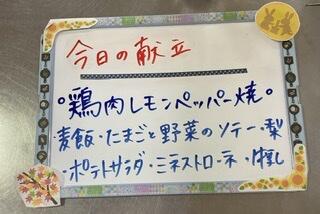 今日の献立
°鶏肉レモンペッパー焼°
・麦飯・たまごと野菜のソテー・梨
・ポテトサラダ・ミネストローネ・牛乳